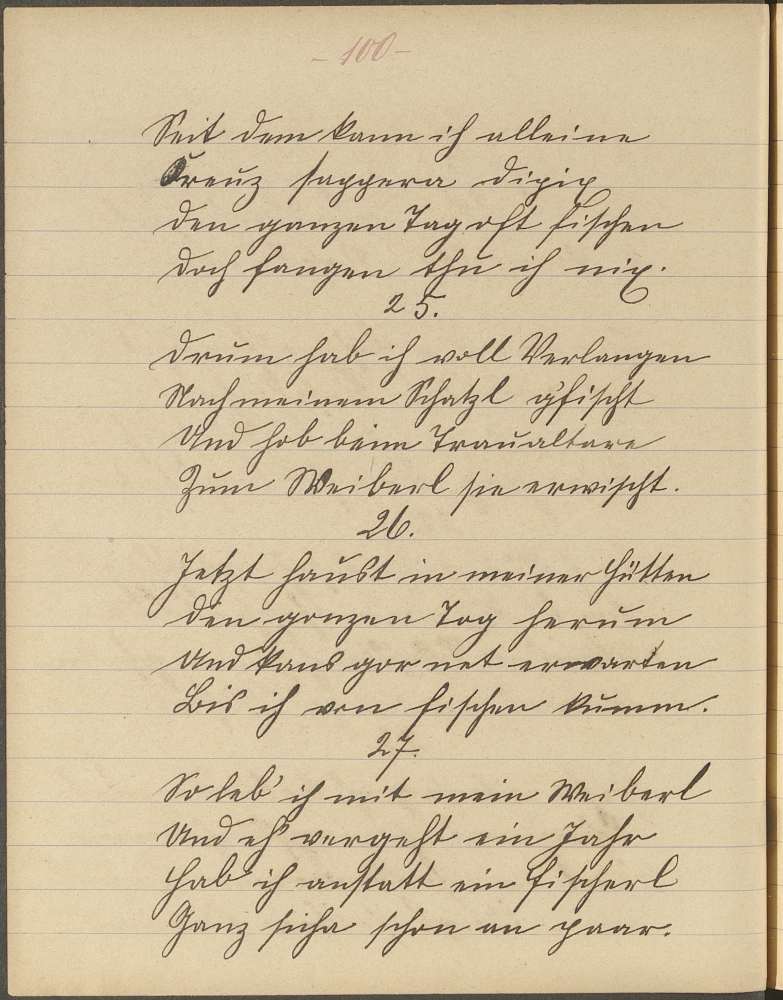 - 100 -
Seit dem kann ich alleine
Kreuz sappera dixix
den ganzen Tag oft fischen
doch fangen thu ich nix.
25.
Drum hab ich voll Verlangen
Nach meinem Schatzl g'fischt
Und hob beim Traualtare
Zum Weiberl sie erwischt.
26.
Jetzt haust in meiner Hütten
den gonzen Tog herum
Und kans gor net erwarten
Bis ich von fischen kumm.
27.
So leb' ich mit mein Weiberl
Und eh's vergeht ein Jahr
Hab ich anstatt ein Fischerl
Ganz sicha schon an paar.